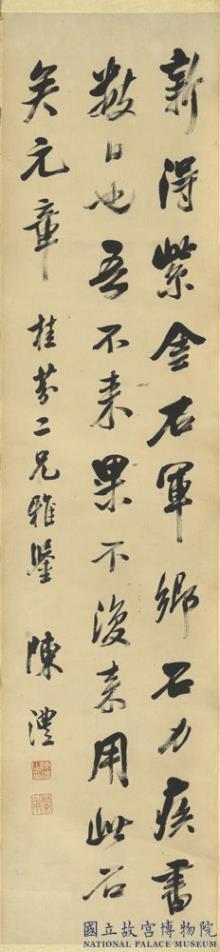 新得紫金右軍鄉石力疾書
數日也吾不来果不復来用此石
矣元章 桂芬二兄雅鑒 陳澧
國立故宮博物院
NATIONAL PALACE MUSEUM